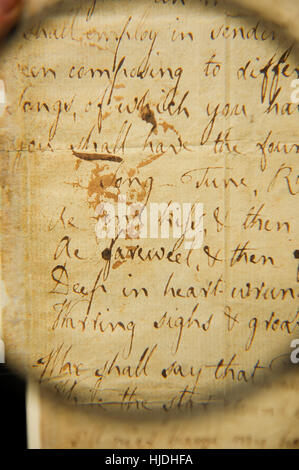 shall employ in sendin
een composing to differ
songs, of which you, ha
you shall have the four
Song - Tune, R
Ae fond kiss, & then
Ae fareweel, & then
Deep in heart-wrun
Warring sighs & groa
Wha shall say that
While the star
alamy
Image ID: HJDHFA
www.alamy.com